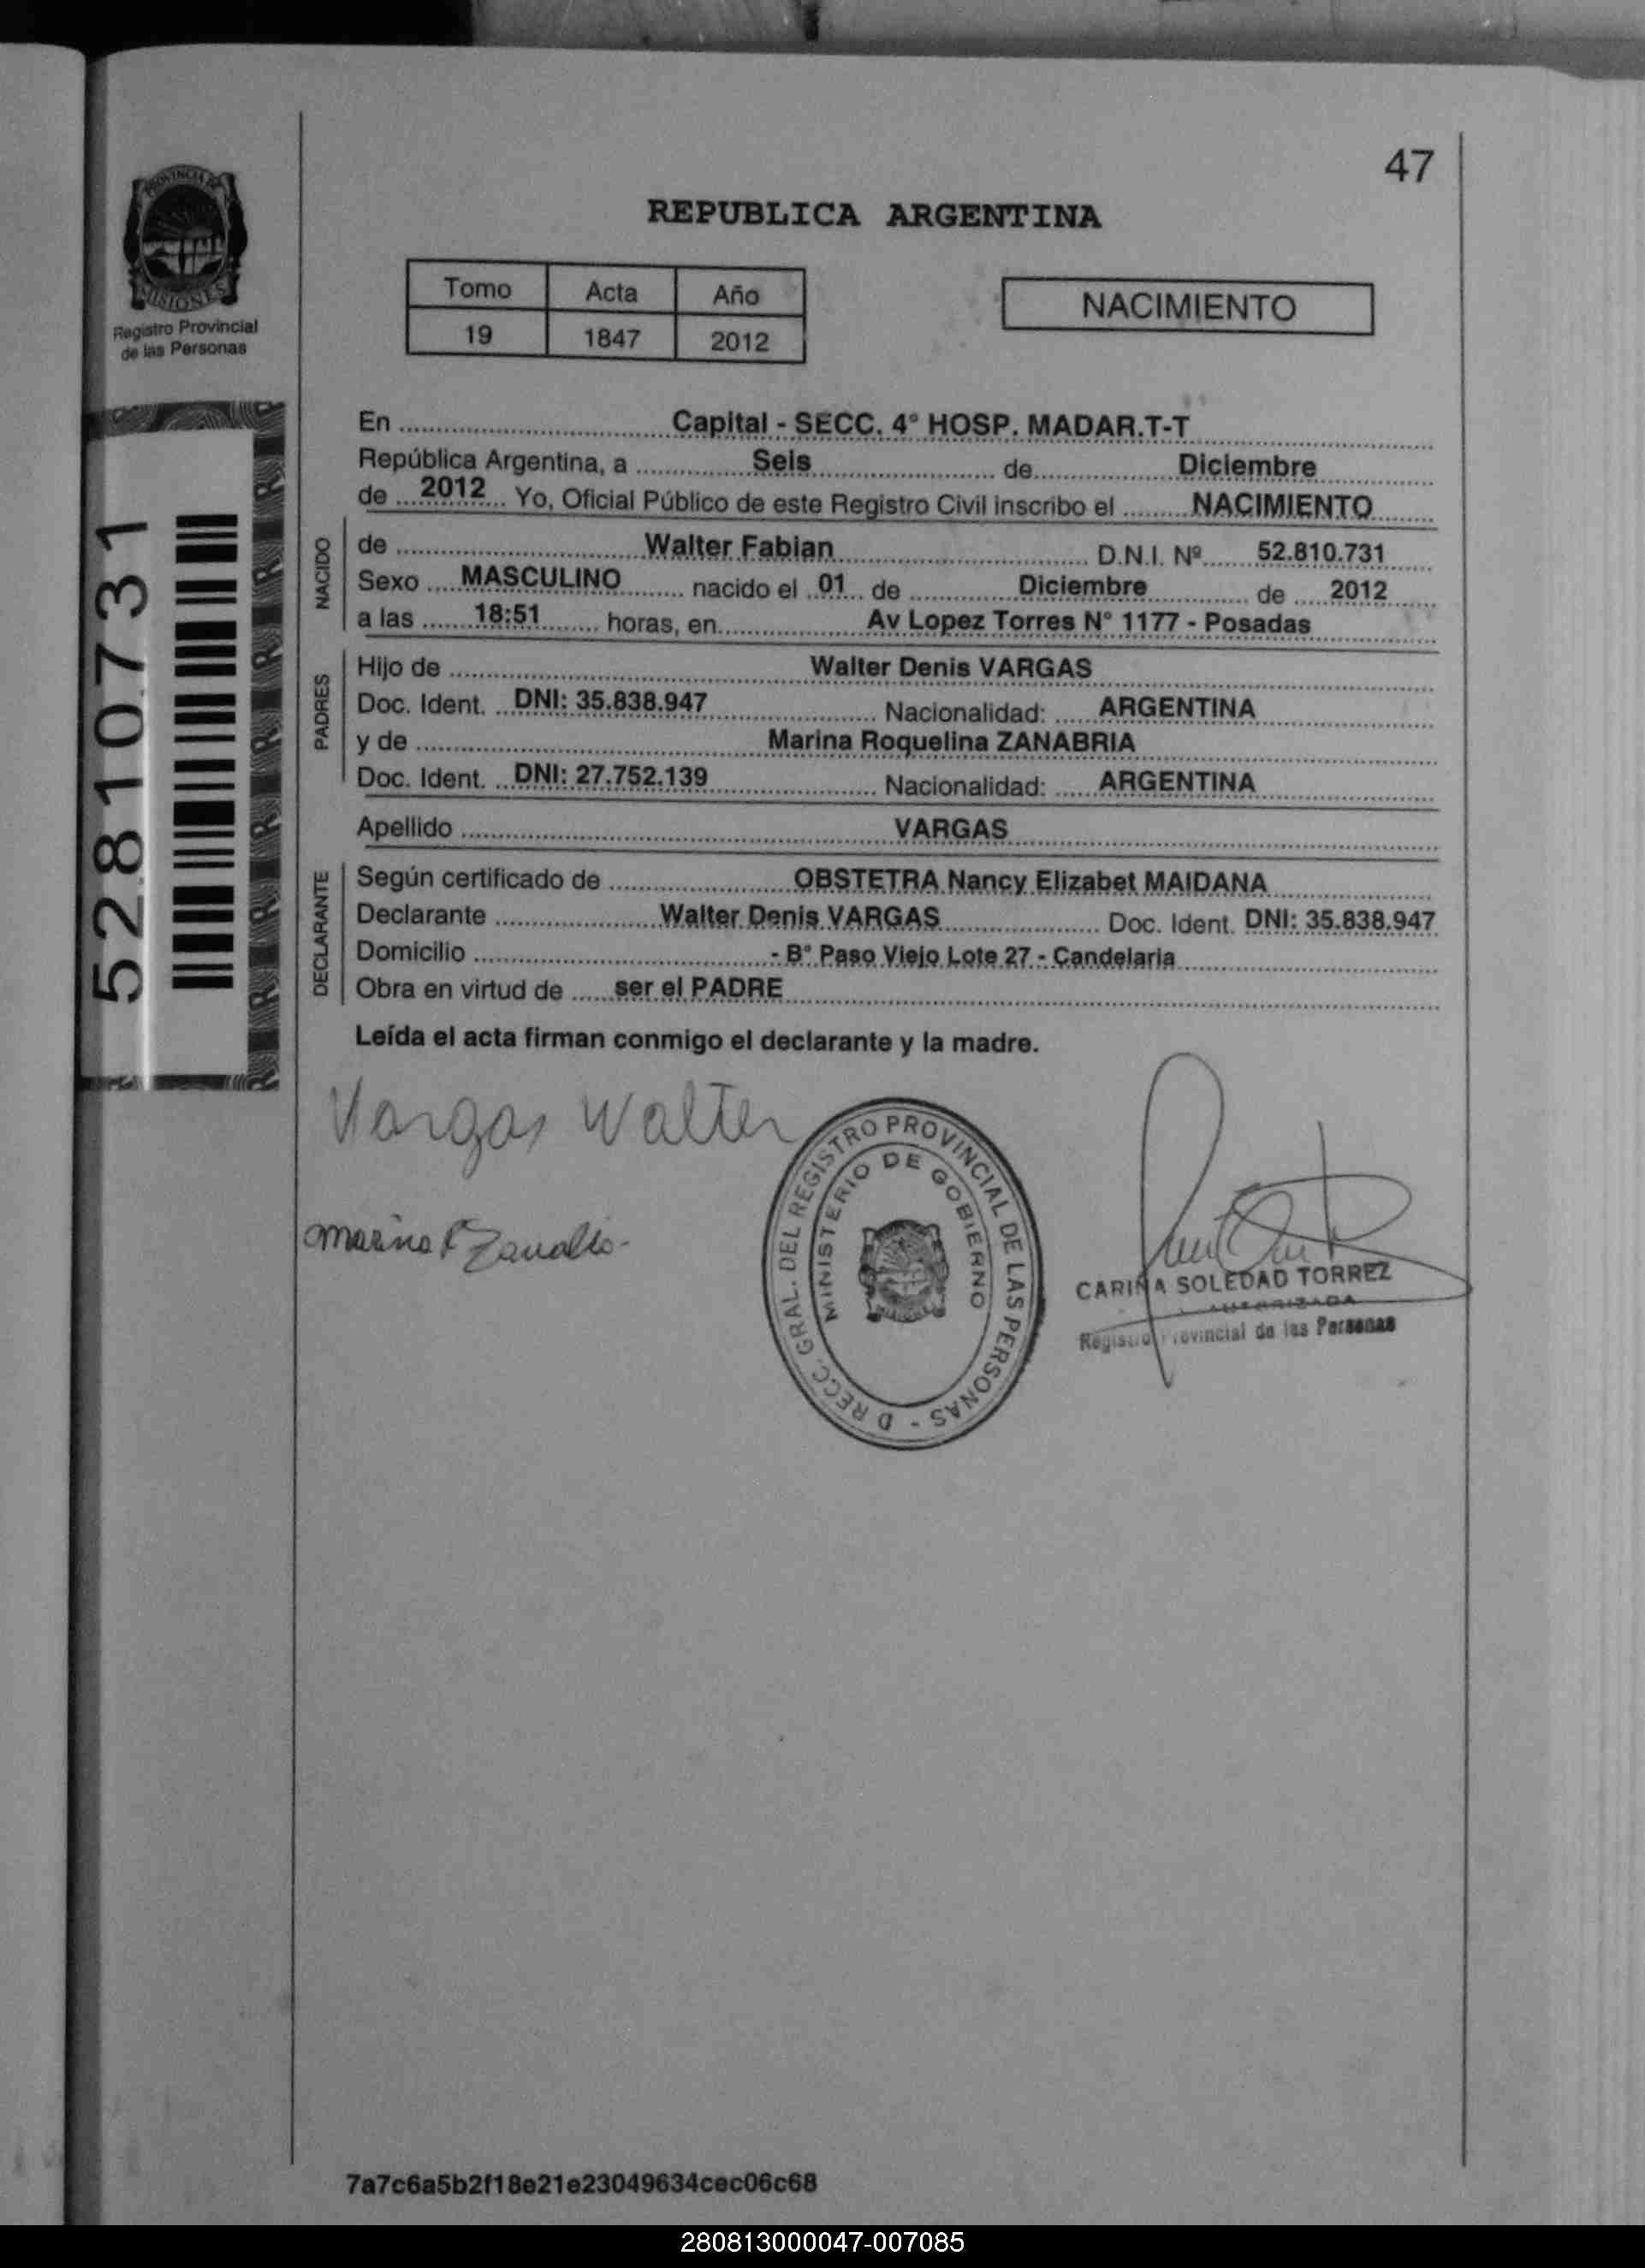 47
PROVINCIA DE
MISIONES
Registro Provincial
de las Personas
REPUBLICA ARGENTINA
Tomo Acta Año
19 1847 2012
NACIMIENTO
52810731
En Capital - SECC. 4° HOSP. MADAR.T-T
República Argentina, a Seis de Diciembre
de 2012 Yo, Oficial Público de este Registro Civil inscribo el NACIMIENTO
NACIDO
de Walter Fabian D.N.I. Nº 52.810.731
Sexo MASCULINO nacido el 01 de Diciembre de 2012
a las 18:51 horas, en Av Lopez Torres N° 1177 - Posadas
PADRES
Hijo de Walter Denis VARGAS
Doc. Ident. DNI: 35.838.947 Nacionalidad: ARGENTINA
y de Marina Roquelina ZANABRIA
Doc. Ident. DNI: 27.752.139 Nacionalidad: ARGENTINA
Apellido VARGAS
DECLARANTE
Según certificado de OBSTETRA Nancy Elizabet MAIDANA
Declarante Walter Denis VARGAS Doc. Ident. DNI: 35.838.947
Domicilio - B° Paso Viejo Lote 27 - Candelaria
Obra en virtud de ser el PADRE
Leída el acta firman conmigo el declarante y la madre.
Vargas Walter
Marina R
D RECC. GRAL. DEL REGISTRO PROVINCIAL DE LAS PERSONAS -
MINISTERIO DE GOBIERNO
CARINA SOLEDAD TORREZ
AUTORIZADA
Registro Provincial de las Personas
7a7c6a5b2f18e21e23049634cec06c68
280813000047-007085